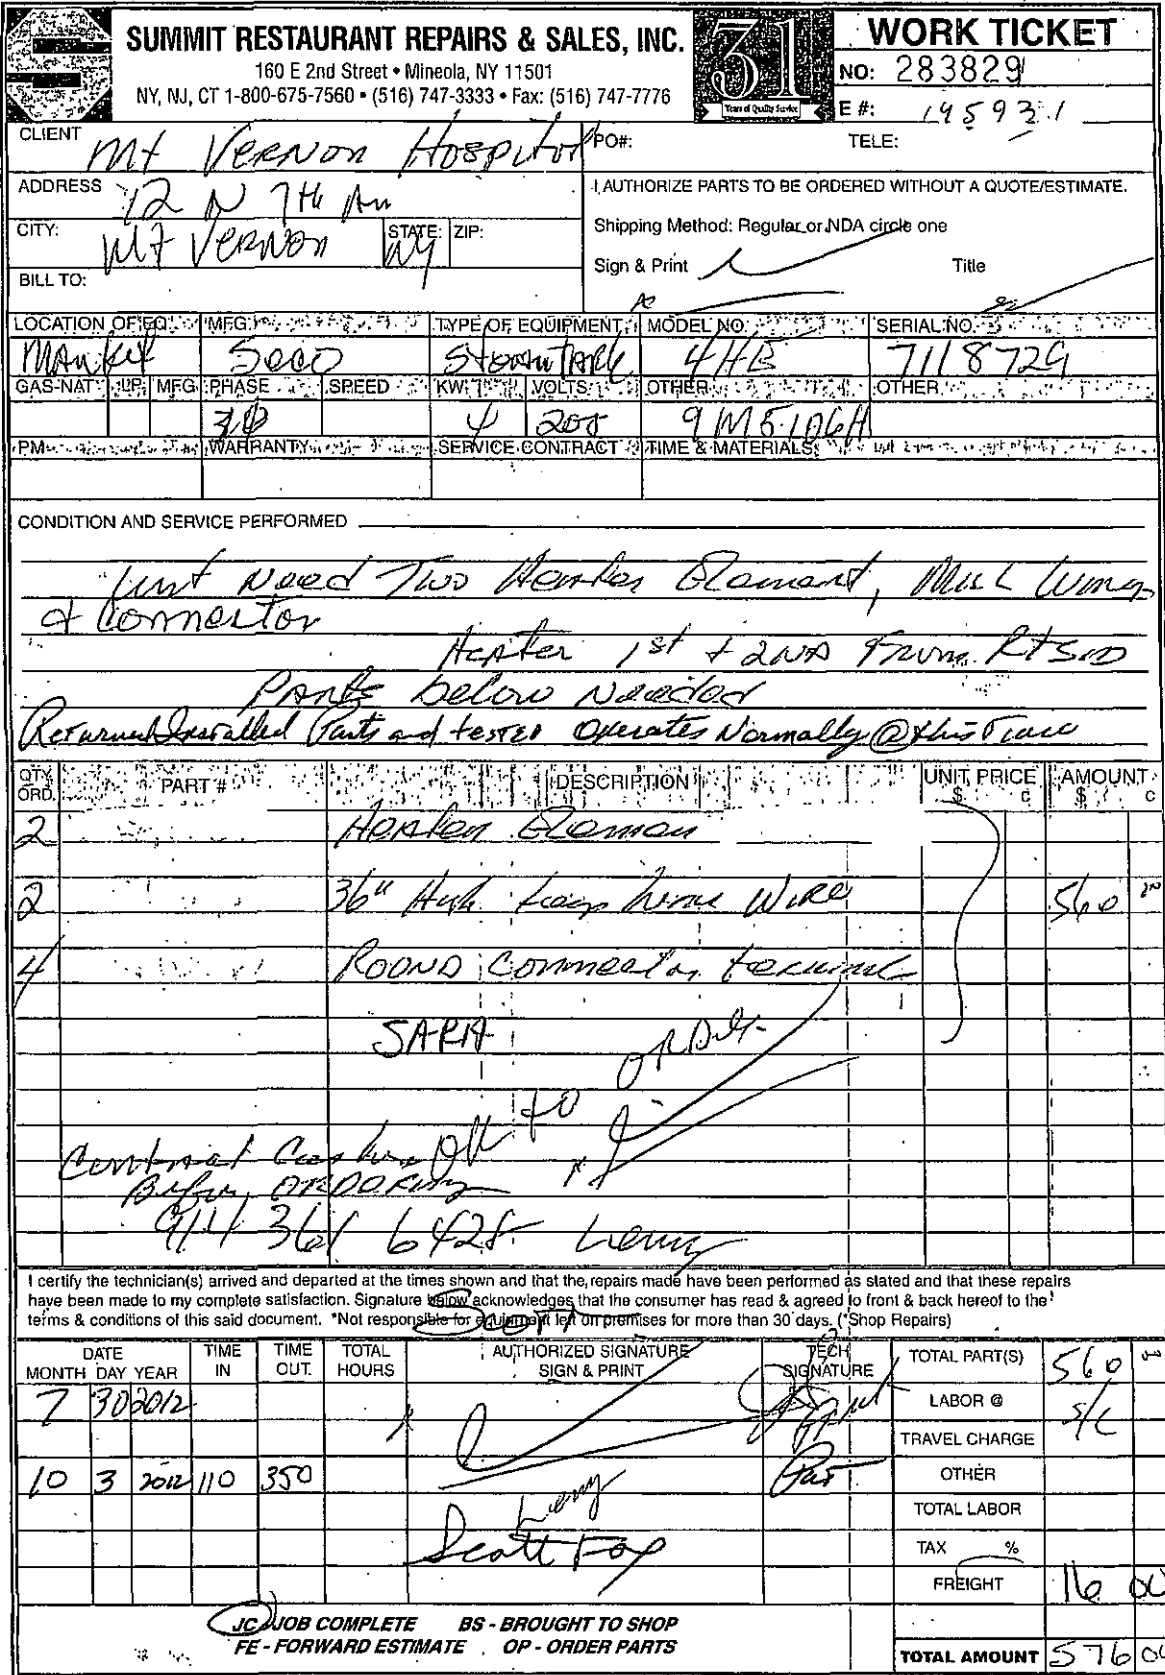 SUMMIT RESTAURANT REPAIRS & SALES, INC.
160 E 2nd Street • Mineola, NY 11501
NY, NJ, CT 1-800-675-7560 • (516) 747-3333 • Fax: (516) 747-7776
31
Years of Quality Service
WORK TICKET
NO: 283829
E #: 195931
CLIENT Mt Vernon Hospital
PO#: TELE:
ADDRESS 12 N 7th Av
I AUTHORIZE PARTS TO BE ORDERED WITHOUT A QUOTE/ESTIMATE.
CITY: Mt Vernon STATE: NY ZIP:
Shipping Method: Regular or NDA circle one
Sign & Print Title
BILL TO:
LOCATION OF EQ. MFG. TYPE OF EQUIPMENT MODEL NO. SERIAL NO.
Seco 4HB 7118729
GAS-NAT LP MFG PHASE SPEED KW VOLTS OTHER OTHER
3Ø 4 208 9M5106H
PM WARRANTY SERVICE CONTRACT TIME & MATERIALS
CONDITION AND SERVICE PERFORMED
Unit Need Two Heater Element,
& Connector
Heater 1st & 2ND From Rt SID
Parts below Needed
Returned Installed Parts and tested Operates Normally @ this Time
QTY ORD. PART # DESCRIPTION UNIT PRICE $ c AMOUNT $ c
2 Heater Elemen
2 36" High Temp Wire 560
4 Round Connector termin
SARA
OK to Order
Before Ordering
914 361 6428 Lenny
I certify the technician(s) arrived and departed at the times shown and that the repairs made have been performed as stated and that these repairs
have been made to my complete satisfaction. Signature below acknowledges that the consumer has read & agreed to front & back hereof to the
terms & conditions of this said document. *Not responsible for equipment left on premises for more than 30 days. (*Shop Repairs)
Scott
DATE MONTH DAY YEAR TIME IN TIME OUT TOTAL HOURS AUTHORIZED SIGNATURE SIGN & PRINT TECH SIGNATURE
TOTAL PART(S) 560
7 30 2012
LABOR @ S/C
TRAVEL CHARGE
10 3 2012 110 350
OTHER
Lenny
TOTAL LABOR
Scott Fox
TAX %
FREIGHT 16 00
JC JOB COMPLETE BS - BROUGHT TO SHOP
FE - FORWARD ESTIMATE OP - ORDER PARTS
TOTAL AMOUNT 576 00